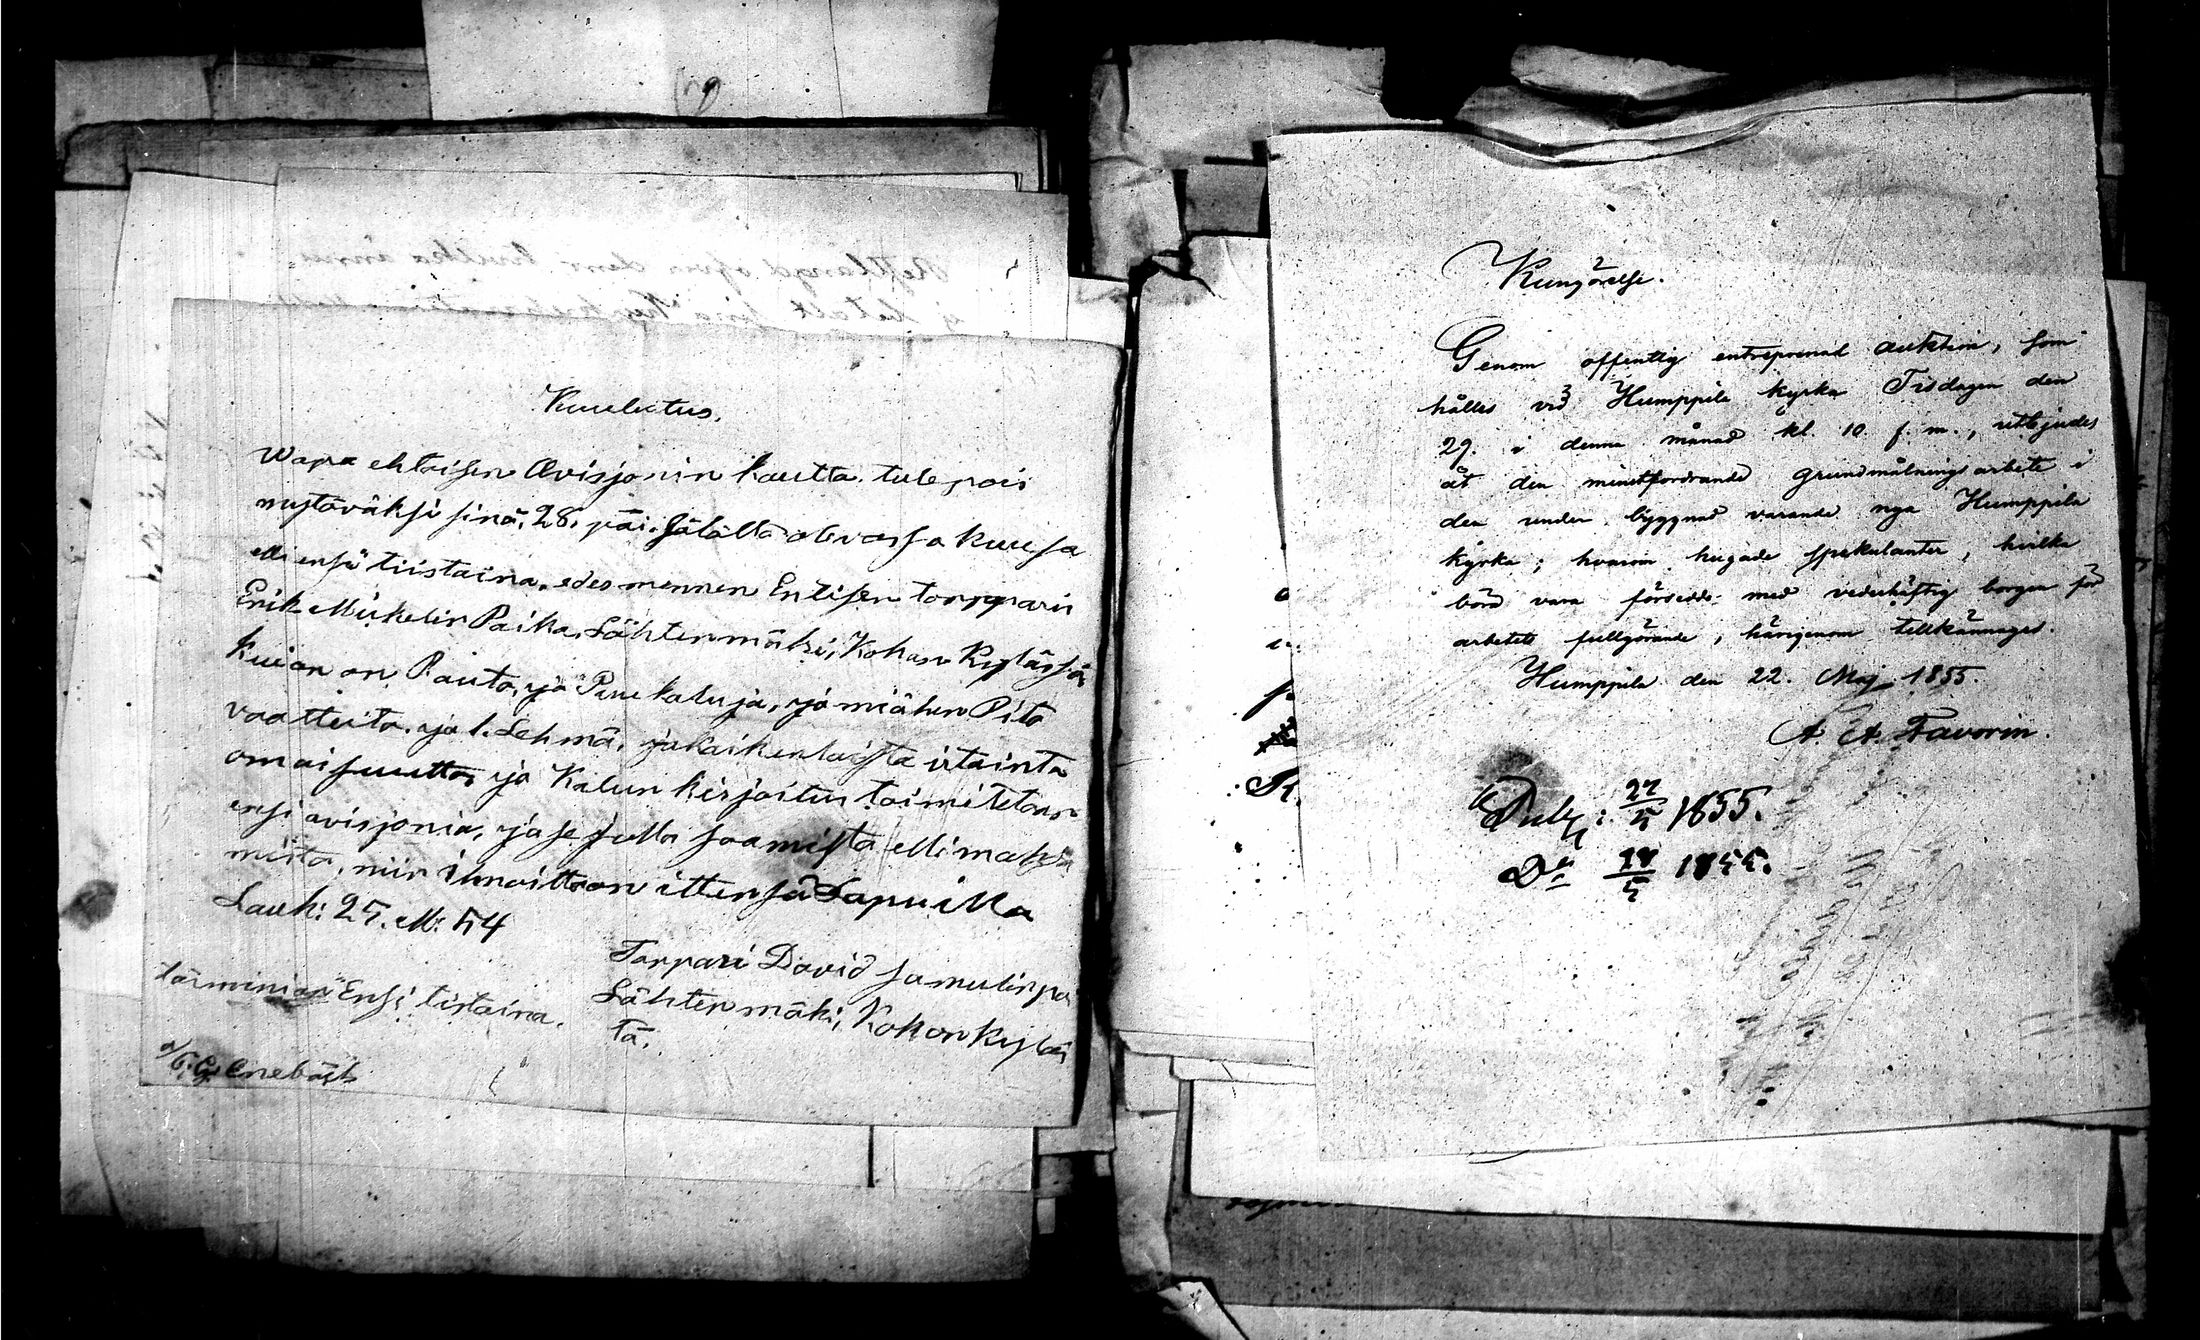 Kuulutus.
Wapa ehtoisen Avisjonin kautta. tule pois
myytäväksi sinä, 28. päi. Jälällä olevassa kuusa
elli ensi tiistaina, edesmennen Entisen torpparin
Erik Mickelin Paika, Lähtenmäki, Kokon Kylässä
kuion on Rauta, ja Puukaluja, ja miähen Pito
vaatteita, ja 1. Lehmä, ja kaikenlaista irtainta
omaisuutta, ja Kalun kirjoitus toimitetaan
ensi avisjonia, ja se jolla saamista elli maksa
mista, niin ilmoittaan ittensä Lapuilla
Lauk: 25. M: 54
Torpari David Samulinpo
Lähtenmäki, Kokonkylä
tä.
tärminian Ensi tistaina.
Kungörelse.
Genom offentlig entreprenad auktion, som
hålles vid Humppila kyrka Tisdagen den
29. i denna månad kl. 10 f. m., utbjudes
åt den minstfordrande grundmålningsarbete i
den under byggnad varande nya Humppila
kyrka; hvarom hugade spekulanter, hvilka
börd vara försedde med vederhäftig borgen för
arbetets fullgörande, härigenom tillkännages.
Humppila den 22. Maj 1855.
A. A. Favorin.
Publ: 27/5 1855.
D° 28/5 1855.